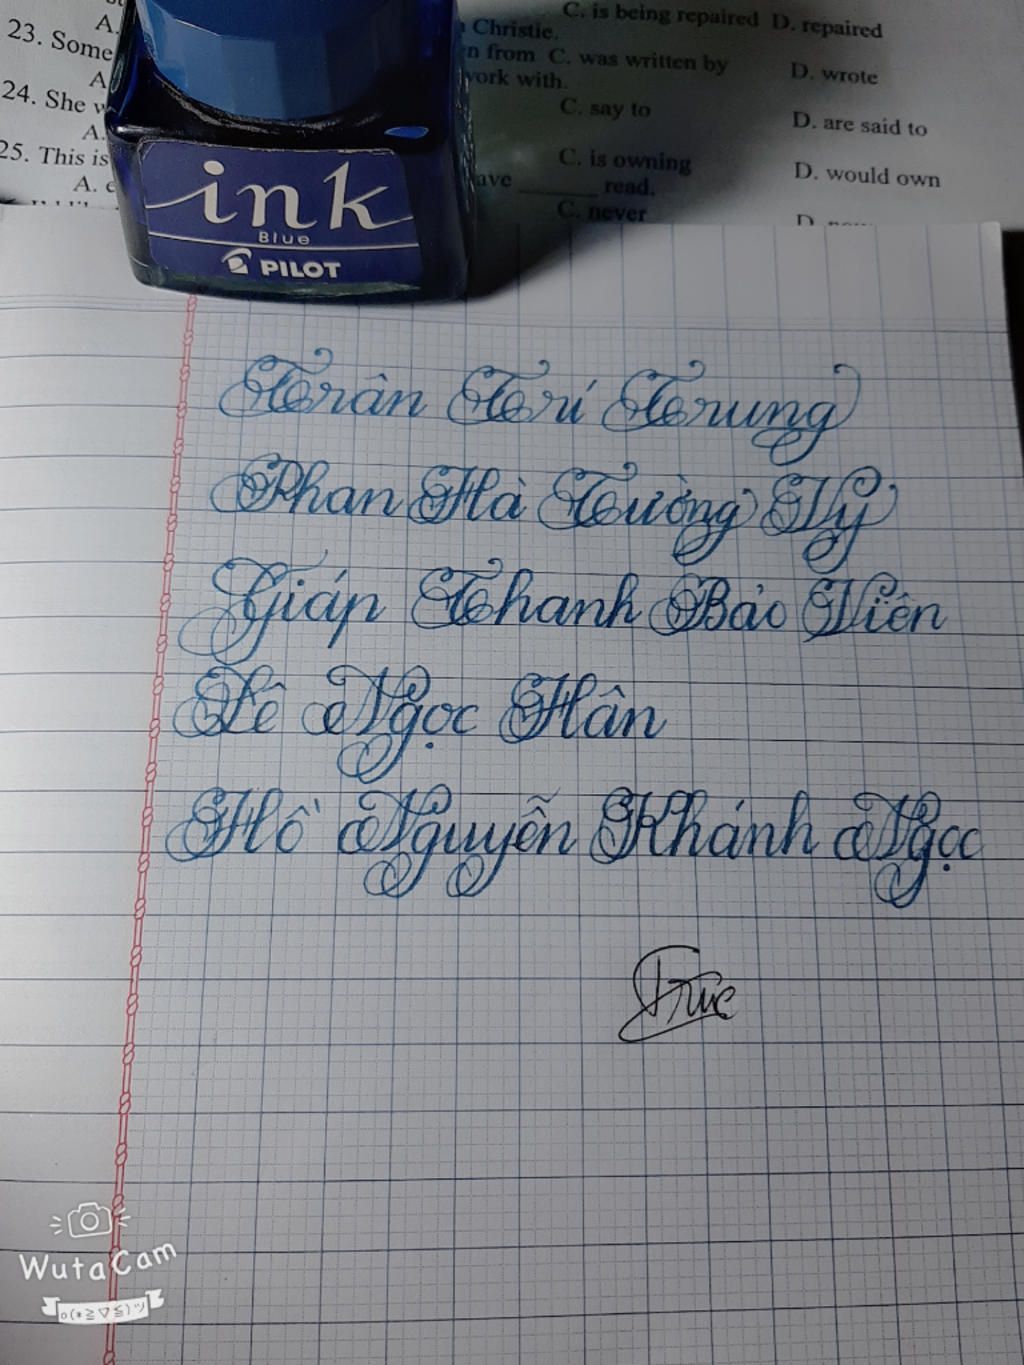 C. is being repaired D. repaired
A.
23. Some Christie.
n from C. was written by D. wrote
A work with.
24. She w C. say to D. are said to
A.
25. This is C. is owning D. would own
A. ave ______ read.
C. never
ink
Blue
PILOT
Trân Trí Trung
Phan Hà Tường Vy
Giáp Thanh Bảo Viên
Lê Ngọc Hân
Hồ Nguyễn Khánh Ngọc
Trúc
WutaCam
o(*≧▽≦)ツ